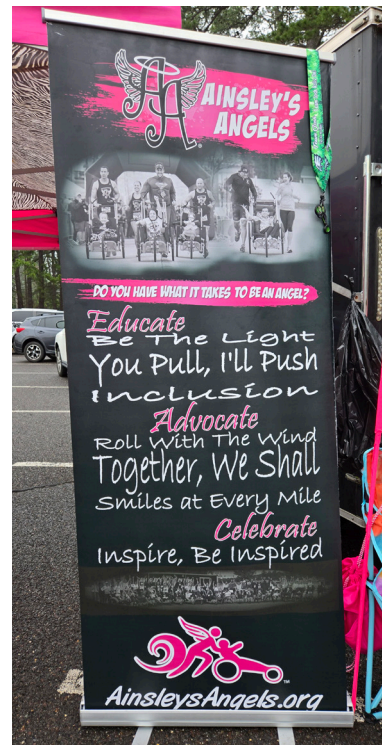 AINSLEY'S
ANGELS
DO YOU HAVE WHAT IT TAKES TO BE AN ANGEL?
Educate
Be The Light
You Pull, I'll Push
Inclusion
Advocate
Roll With The Wind
Together, We Shall
Smiles at Every Mile
Celebrate
Inspire, Be Inspired
AinsleysAngels.org